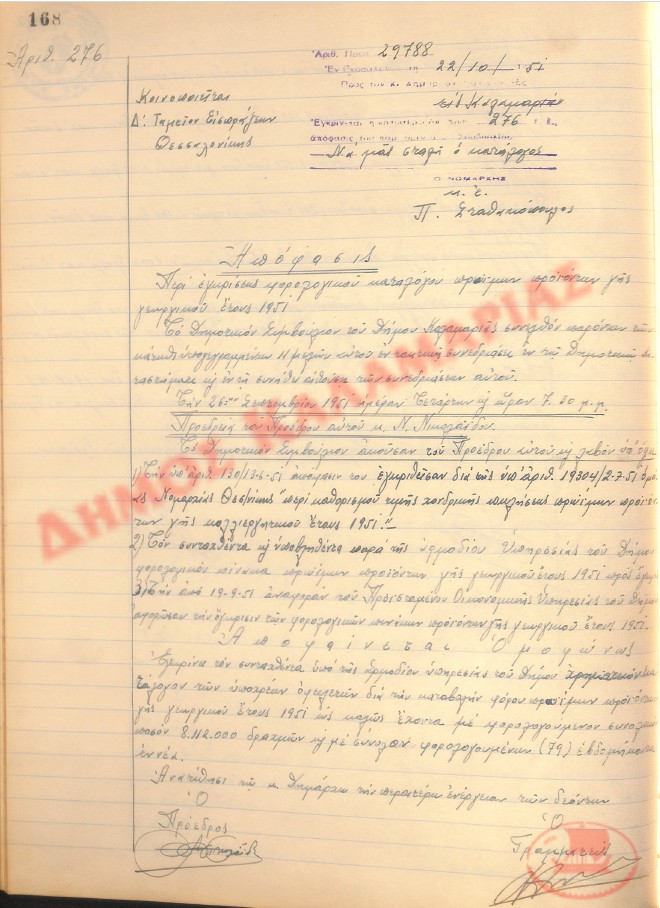 168
Ἀριθ. 276
Ἀριθ. Πρωτ. 29788
Ἐν Θεσσαλονίκῃ τῇ 22/10/51
Πρὸς τὸν κ. Δήμαρχον
Καλαμαριᾶς
Κοινοποιεῖται
Δ΄ Ταμεῖον Εἰσπράξεων
Θεσσαλονίκης
Ἐγκρίνεται ἡ 276
ἀπόφασις τοῦ
Νὰ μᾶς σταλῇ ὁ κατάλογος
Ο ΝΟΜΑΡΧΗΣ
κ.ἐ.
Π. Σταθακόπουλος
Ἀπόφασις
Περὶ ἐγκρίσεως φορολογικοῦ καταλόγου πρωΐμων προϊόντων γῆς
γεωργικοῦ ἔτους 1951
Τὸ Δημοτικὸν Συμβούλιον τοῦ Δήμου Καλαμαριᾶς συνελθὸν παρόντων τῶν
κάτωθι ὑπογεγραμμένων 11 μελῶν αὐτοῦ ἐν τακτικῇ συνεδριάσει ἐν τῷ Δημοτικῷ Κα-
ταστήματι καὶ ἐν τῇ συνήθει αἰθούσῃ τῶν συνεδριάσεων αὐτοῦ.
Τὴν 26ην Σεπτεμβρίου 1951 ἡμέραν Τετάρτην καὶ ὥραν 7.30 μ.μ.
Προεδρείᾳ τοῦ Προέδρου αὐτοῦ κ. Ν. Νικολαΐδου.
Τὸ Δημοτικὸν Συμβούλιον ἀκοῦσαν τοῦ Προέδρου αὐτοῦ καὶ λαβὸν ὑπ' ὄψει
1) Τὴν ὑπ' ἀριθ. 130/13-6-51 ἀπόφασίν του ἐγκριθεῖσαν διὰ τῆς ὑπ' ἀριθ. 19304/2-7-51
Νομαρχίας Θεσ/νίκης "περὶ καθορισμοῦ τιμῆς χονδρικῆς πωλήσεως πρωΐμων προϊόν-
των γῆς καλλιεργητικοῦ ἔτους 1951."
2) Τὸν συνταχθέντα καὶ ὑποβληθέντα παρὰ τῆς ἁρμοδίου Ὑπηρεσίας τοῦ Δήμου
φορολογικὸν πίνακα πρωΐμων προϊόντων γῆς γεωργικοῦ ἔτους 1951 πρὸς ἔγκρ.
3) Τὴν ἀπὸ 19-9-51 ἀναφορὰν τοῦ Προϊσταμένου Οἰκονομικῆς Ὑπηρεσίας τοῦ Δήμου
ἀφορῶσαν τὴν ἔγκρισιν τῶν φορολογικῶν πινάκων προϊόντων γῆς γεωργικοῦ ἔτους 1951.
Ἀποφαίνεται Ὁμοφώνως
Ἐγκρίνει τὸν συνταχθέντα ὑπὸ τῆς ἁρμοδίου ὑπηρεσίας τοῦ Δήμου χρηματικὸν κα-
τάλογον τῶν ὑποχρέων ὀφειλετῶν διὰ τὴν καταβολὴν φόρου πρωΐμων προϊόντων
γῆς γεωργικοῦ ἔτους 1951 ὡς καλῶς ἔχοντα μὲ φορολογούμενον συνολικὸν
ποσὸν 8.112.000 δραχμῶν καὶ μὲ σύνολον φορολογουμένων (79) ἑβδομήκοντα
ἐννέα.
Ἀνατίθησι τῷ κ. Δημάρχῳ τὴν περαιτέρω ἐνέργειαν τῶν δεόντων
Ὁ
Πρόεδρος
Ὁ
Γραμματεὺς
ΔΗΜΟΣ ΚΑΛΑΜΑΡΙΑΣ